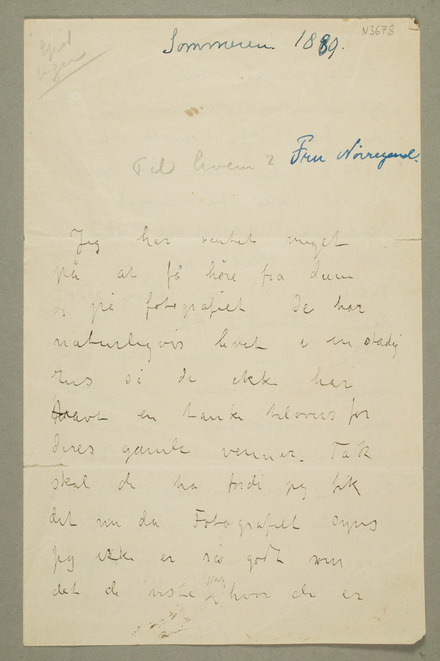 N3678
Sommeren 1889.
Til hvem? Fru Nörregard.
Jeg har ventet meget
på at få höre fra dem
og på fotografiet De har
naturligvis levet i en stadig
Rus så de ikke har
havt en tanke tilovers for
deres gamle venner. Tak
skal de ha fordi jeg fik
det nu da Fotografiet synes
jeg ikke er så godt som
det de viste mig hvor de er